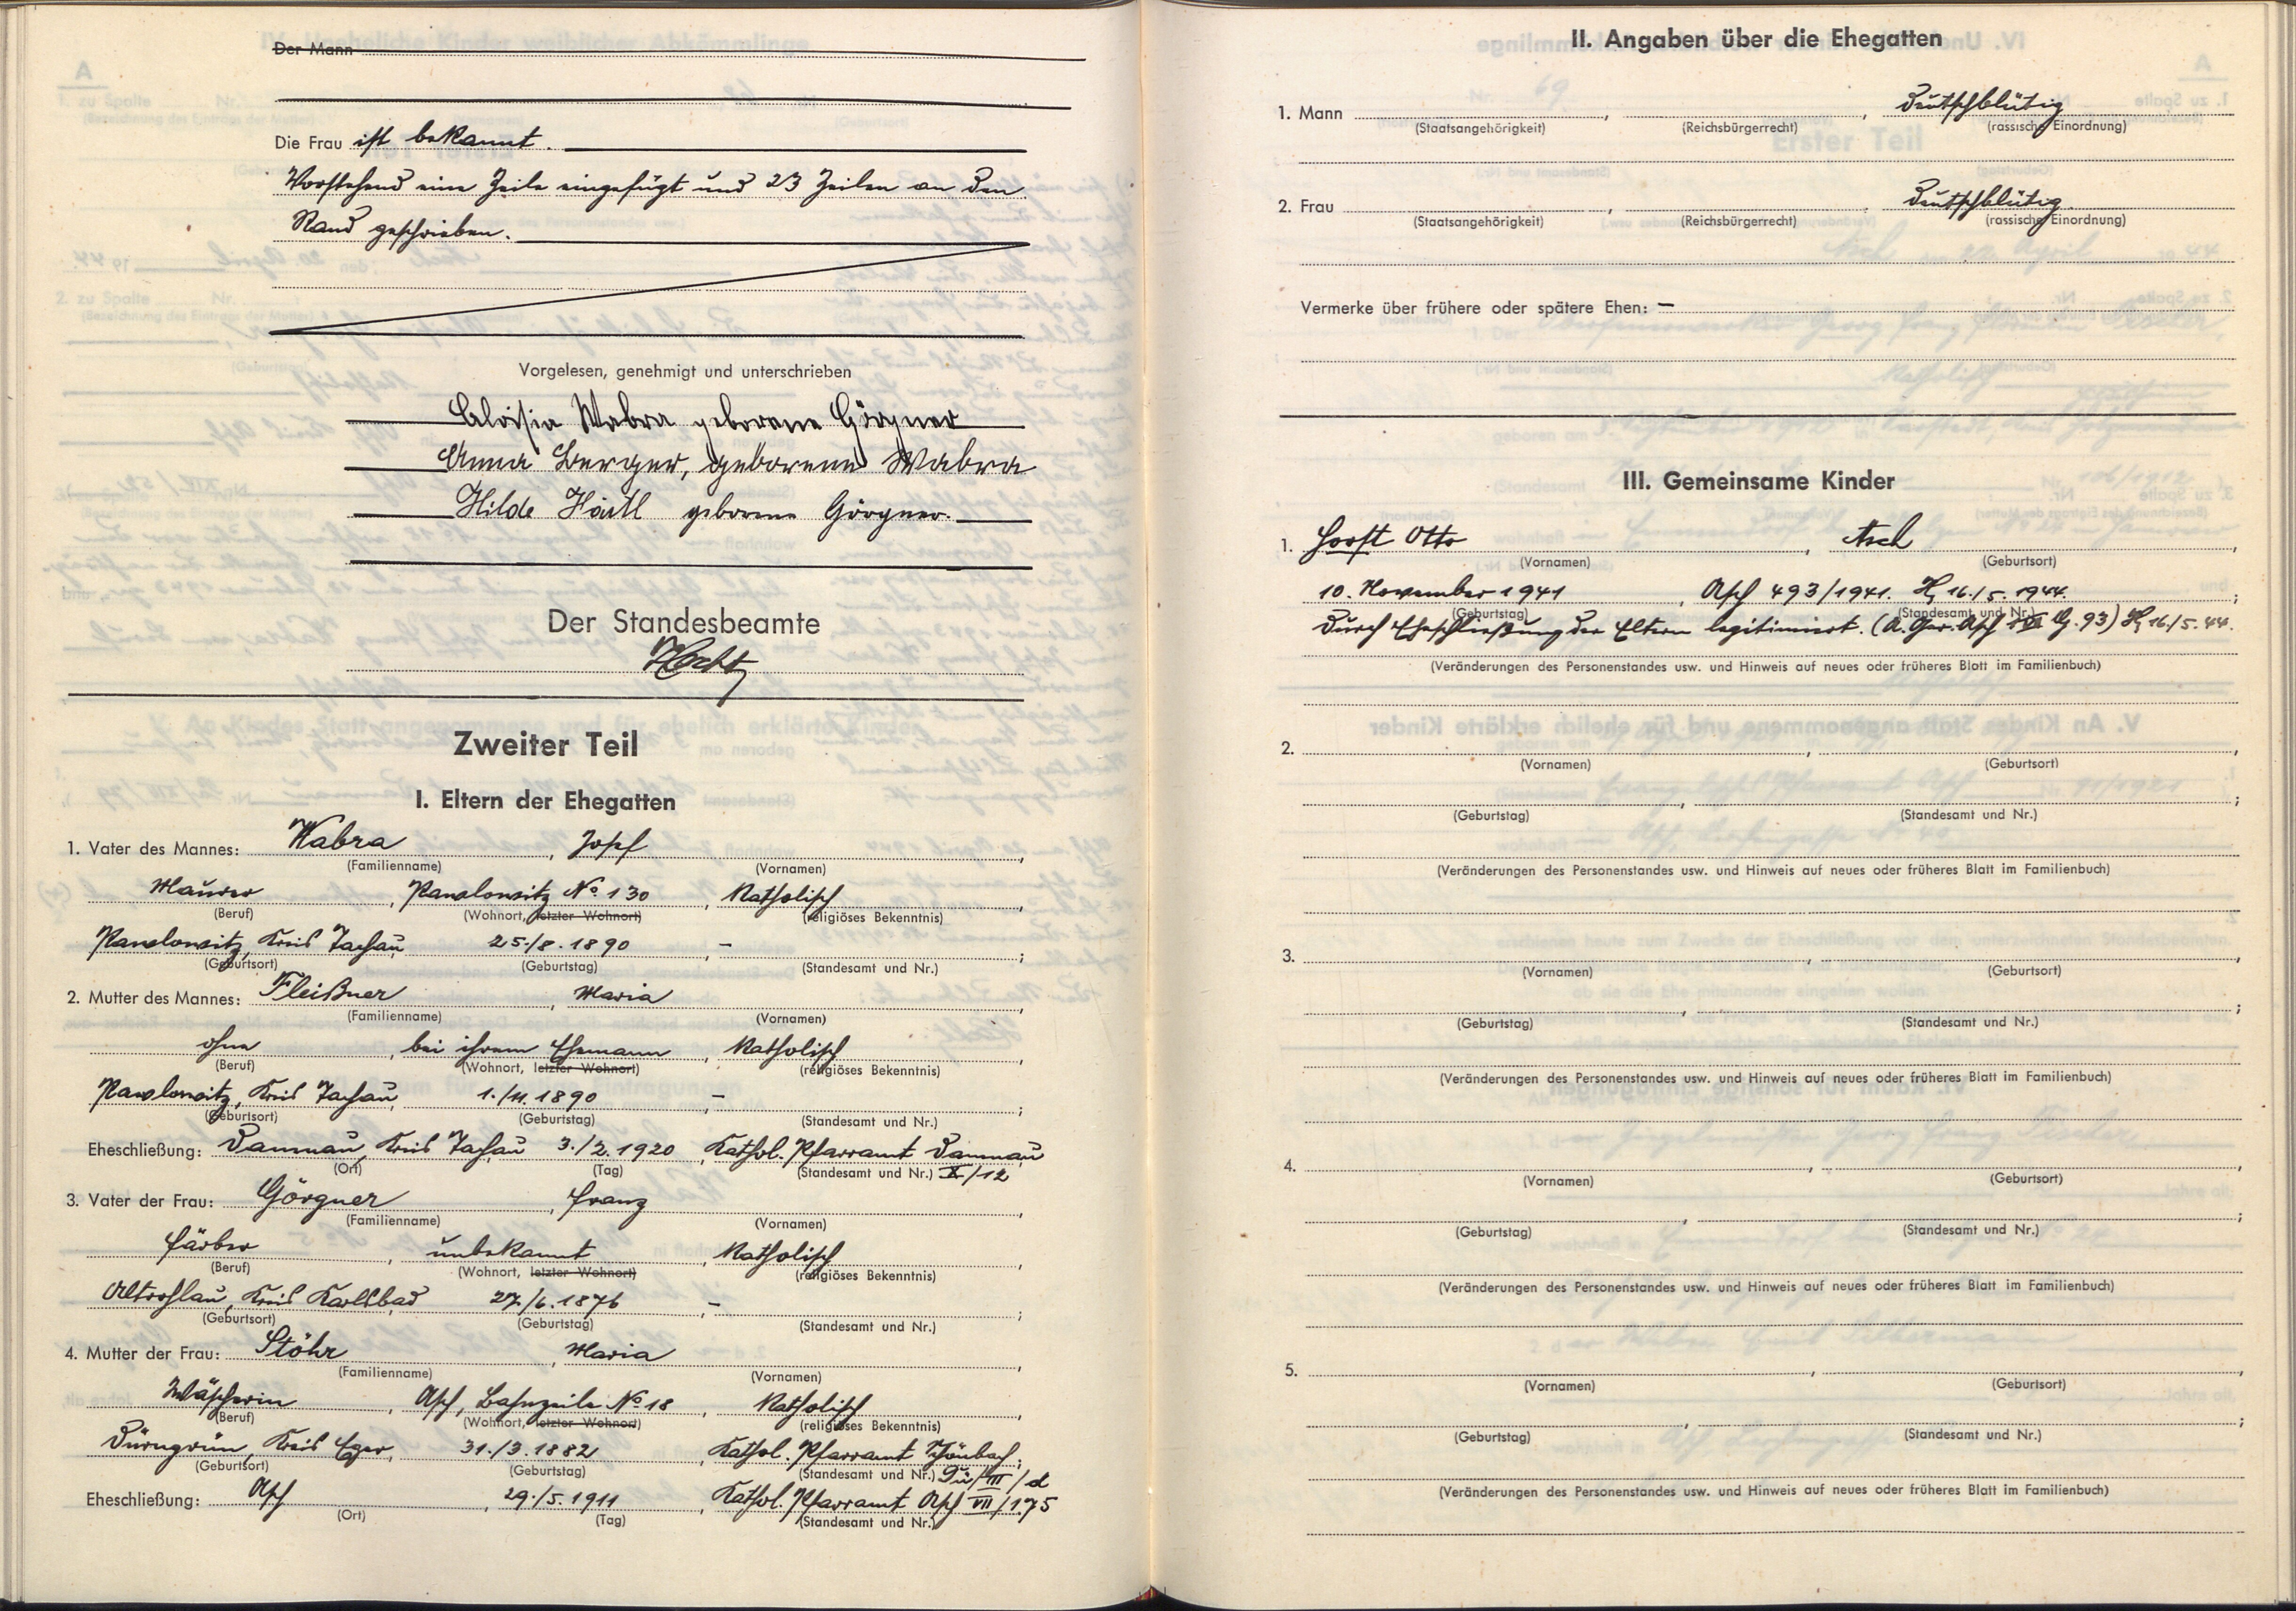 Der Mann
Die Frau ist bekannt.
Vorstehend eine Zeile eingefügt und 23 Zeilen an den
Rand geschrieben.
Vorgelesen, genehmigt und unterschrieben
Aloisia Wabra geborene Görgner
Anna Berger, geborene Wabra
Hilde Härtl geborene Görgner.
Der Standesbeamte
Zweiter Teil
I. Eltern der Ehegatten
1. Vater des Mannes: Wabra, Josef
(Familienname) (Vornamen)
Maurer, Pawlowitz No 130, Katholisch,
(Beruf) (Wohnort, letzter Wohnort) (religiöses Bekenntnis)
Pawlowitz, Kreis Tachau, 25./8.1890, –;
(Geburtsort) (Geburtstag) (Standesamt und Nr.)
2. Mutter des Mannes: Fleißner, Maria
(Familienname) (Vornamen)
ohne, bei ihrem Ehemann, Katholisch,
(Beruf) (Wohnort, letzter Wohnort) (religiöses Bekenntnis)
Pawlowitz, Kreis Tachau, 1./11.1890, –;
(Geburtsort) (Geburtstag) (Standesamt und Nr.)
Eheschließung: Damnau, Kreis Tachau 3./2.1920, Kathol. Pfarramt Damnau
(Ort) (Tag) (Standesamt und Nr.) X/12
3. Vater der Frau: Görgner, Franz,
(Familienname) (Vornamen)
Färber, unbekannt, Katholisch,
(Beruf) (Wohnort, letzter Wohnort) (religiöses Bekenntnis)
Altrohlau, Kreis Karlsbad 27./6.1876, –;
(Geburtsort) (Geburtstag) (Standesamt und Nr.)
4. Mutter der Frau: Stöhr, Maria,
(Familienname) (Vornamen)
Wäscherin, Asch, Bahnzeile No 18, Katholisch,
(Beruf) (Wohnort, letzter Wohnort) (religiöses Bekenntnis)
Dürngrün, Kreis Eger, 31./3.1882, Kathol. Pfarramt Schönbach;
(Geburtsort) (Geburtstag) (Standesamt und Nr.) Dü/III/d
Eheschließung: Asch, 29./5.1911, Kathol. Pfarramt Asch VII/175
(Ort) (Tag) (Standesamt und Nr.)
II. Angaben über die Ehegatten
1. Mann , , Deutschblütig
(Staatsangehörigkeit) (Reichsbürgerrecht) (rassische Einordnung)
2. Frau , , Deutschblütig
(Staatsangehörigkeit) (Reichsbürgerrecht) (rassische Einordnung)
Vermerke über frühere oder spätere Ehen: –
III. Gemeinsame Kinder
1. Horst Otto, Asch,
(Vornamen) (Geburtsort)
10. November 1941, Asch 493/1941. 16./5.1944.;
(Geburtstag) (Standesamt und Nr.)
Durch Eheschließung der Eltern legitimiert. (A. Ger. Asch 93) 16./5.44.
(Veränderungen des Personenstandes usw. und Hinweis auf neues oder früheres Blatt im Familienbuch)
2. , ,
(Vornamen) (Geburtsort)
, ;
(Geburtstag) (Standesamt und Nr.)
(Veränderungen des Personenstandes usw. und Hinweis auf neues oder früheres Blatt im Familienbuch)
3. , ,
(Vornamen) (Geburtsort)
, ;
(Geburtstag) (Standesamt und Nr.)
(Veränderungen des Personenstandes usw. und Hinweis auf neues oder früheres Blatt im Familienbuch)
4. , ,
(Vornamen) (Geburtsort)
, ;
(Geburtstag) (Standesamt und Nr.)
(Veränderungen des Personenstandes usw. und Hinweis auf neues oder früheres Blatt im Familienbuch)
5. , ,
(Vornamen) (Geburtsort)
, ;
(Geburtstag) (Standesamt und Nr.)
(Veränderungen des Personenstandes usw. und Hinweis auf neues oder früheres Blatt im Familienbuch)